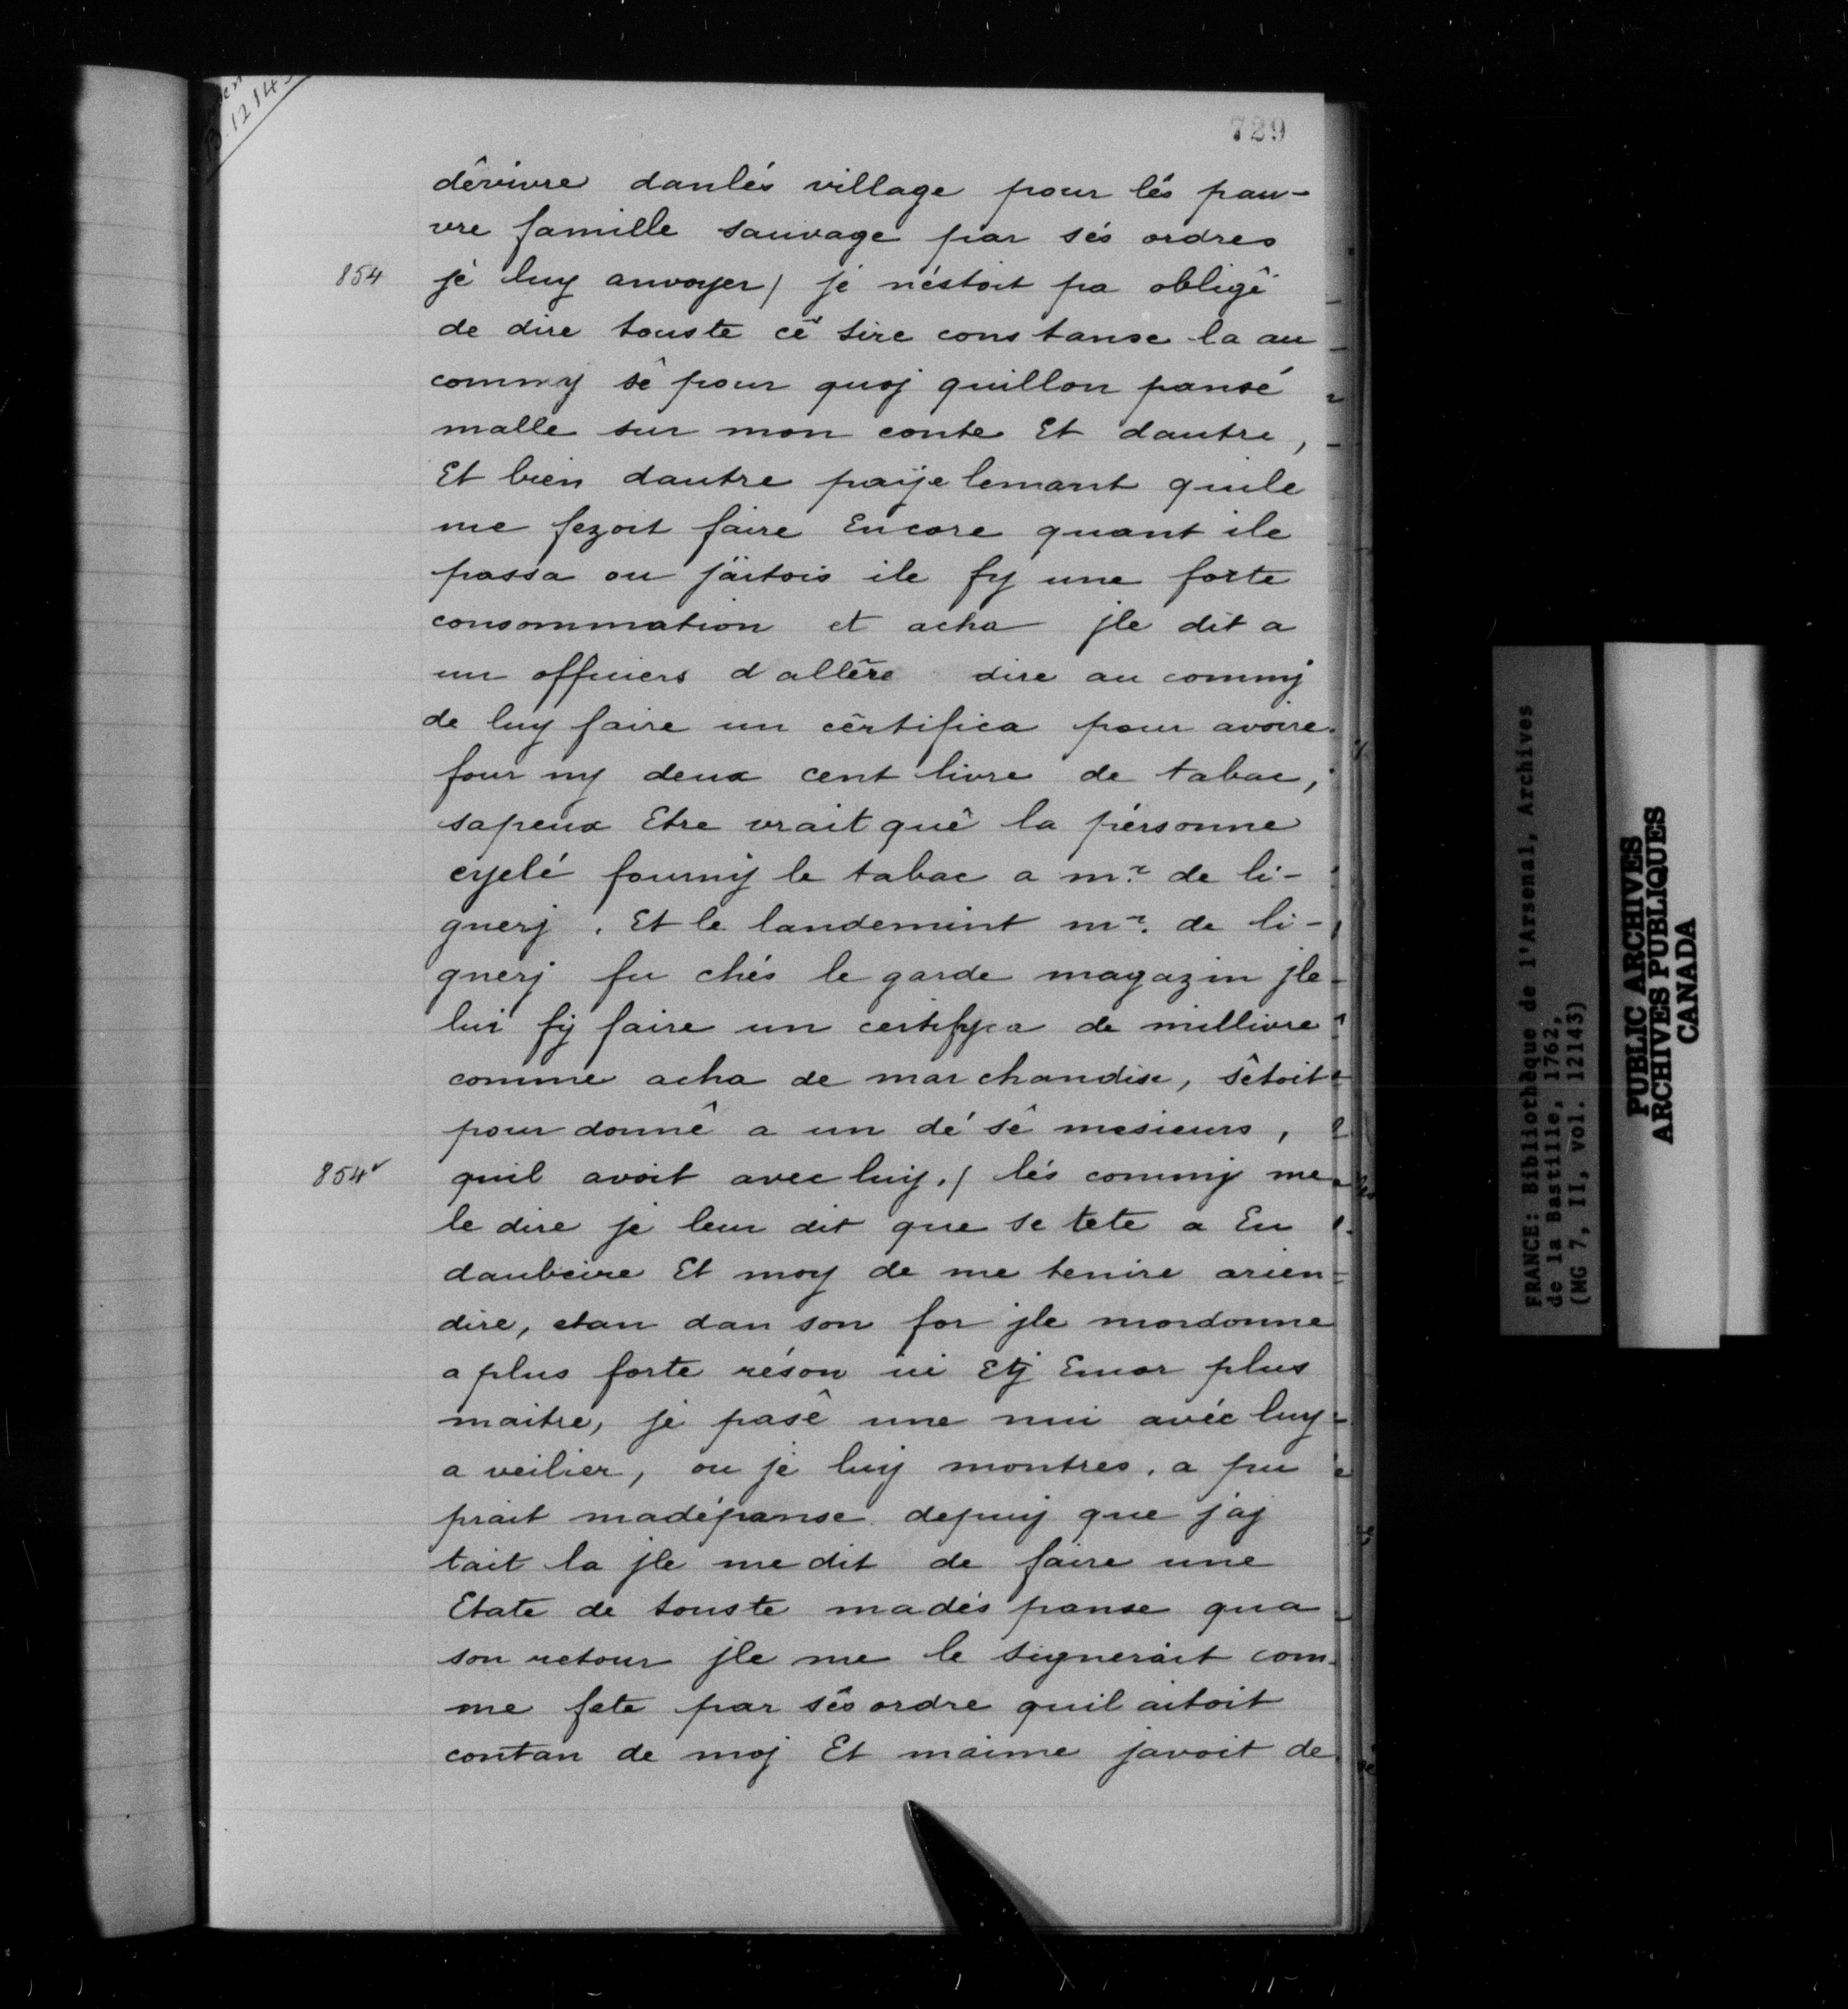 12143
729
dêvivre danlés village pour lés pau-
vre famille sauvage par sés ordres
854 jê luy anvoyer / jé néstoit pa obligê
de dire touste cê sire constanse la au
commy sê pour quoj quillon pansé
malle sur mon conte Et dautre,
Et bien dautre paije lemant quile
me fezoit faire Encore quant ile
passa ou jäitois ile fy une forte
consommation et acha jle dit a
un officiers d allêre dire au commy
de luy faire un cêrtifica pour avoire
four ny deux cent livre de tabac,
sapeux Etre vrait quê la pérsonne
cyelé fourny le tabac a mr. de li-
gnerj. Et le landemint mr. de li-
gnerj fu chés le garde magazin jle
lui fij faire un certifyca de millivre
comme acha de marchandise, sêtoit
pour donnê a un dé sê mesieurs,
854v quil avoit avec luy. / lés commy me
le dire jé leur dit que se tete a En
daubeire Et moy de me tenire arien
dire, etan dan son for jle mordonne
a plus forte réson ici Etj Encor plus
maitre, jé pasê une nui avéc luy
a veilier, ou jé luy montres, a peu
prait madépanse depuy que jaj
tait la jle me dit de faire une
Etate de touste madés panse qua
son retour jle me le signerait com-
me fete par sês ordre quil aitoit
contan de moj Et maime javoit de
FRANCE: Bibliothèque de l'Arsenal, Archives
de la Bastille, 1762,
(MG 7, II, vol. 12143)
PUBLIC ARCHIVES
ARCHIVES PUBLIQUES
CANADA